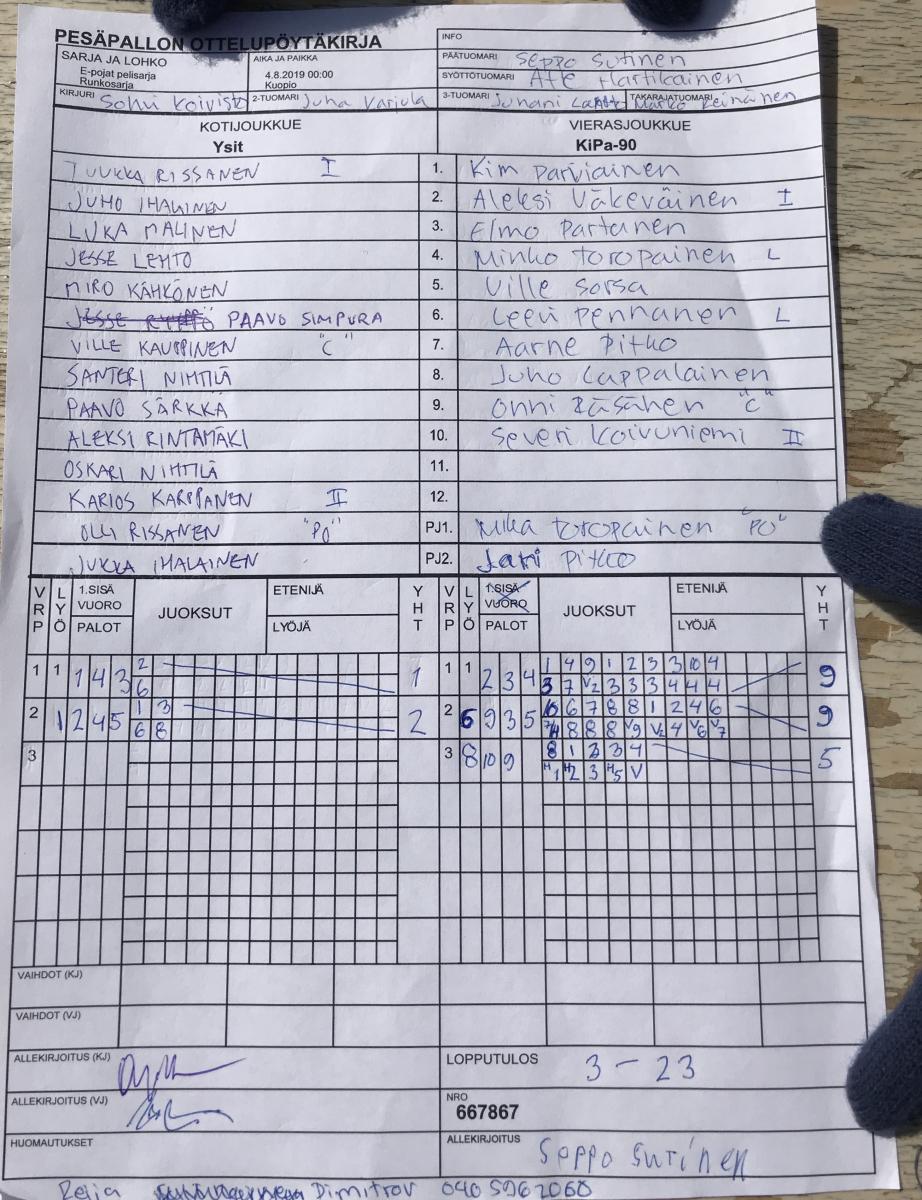 PESÄPALLON OTTELUPÖYTÄKIRJA
INFO
SARJA JA LOHKO
E-pojat pelisarja
Runkosarja
AIKA JA PAIKKA
4.8.2019 00:00
Kuopio
PÄÄTUOMARI Seppo Sutinen
SYÖTTÖTUOMARI Atte Hartikainen
KIRJURI Sohvi Koivisto 2-TUOMARI Juha Varjula 3-TUOMARI Juhani TAKARAJATUOMARI Marko Reinänen
KOTIJOUKKUE VIERASJOUKKUE
Ysit KiPa-90
JUUKKA RISSANEN I 1. Kim Parviainen
JUHO IHALINEN 2. Aleksi Väkeväinen I
LUKA MALINEN 3. Elmo Partanen
JESSE LEHTO 4. Minko Toropainen L
MIRO KÄHKÖNEN 5. Ville Sorsa
PAAVO SIMPURA 6. Leevi Pennanen L
VILLE KAUPPINEN "C" 7. Aarne Pitko
SANTERI NIHTILÄ 8. Juho Lappalainen
PAAVO SÄRKKÄ 9. Onni Räsänen "C"
ALEKSI RINTAMÄKI 10. Severi Koivuniemi II
OSKARI NIHTILÄ 11.
KARIOS KARPPANEN II 12.
OLLI RISSANEN "PO" PJ1. Mika Toropainen "PO"
JUKKA IHALAINEN PJ2. Jani Pitko
VRP LYÖ 1.SISÄ VUORO PALOT JUOKSUT ETENIJÄ LYÖJÄ YHT VRP LYÖ 1.SISÄ VUORO PALOT JUOKSUT ETENIJÄ LYÖJÄ YHT
1 1 1 4 3 2 1 1 1 2 3 4 1 4 9 1 2 3 3 10 4 9
6 3 7 V2 3 3 3 4 4 4
2 1 2 4 5 1 3 2 2 6 9 3 5 10 6 7 8 8 1 2 4 6 9
6 8 8 8 8 V9 V2 4 V6 V7
3 3 8 10 9 8 1 2 3 4 5
H1 H2 3 H5 V
VAIHDOT (KJ)
VAIHDOT (VJ)
ALLEKIRJOITUS (KJ)
LOPPUTULOS 3 - 23
ALLEKIRJOITUS (VJ)
NRO
667867
HUOMAUTUKSET
ALLEKIRJOITUS Seppo Sutinen
Reija Dimitrov 040 5962068